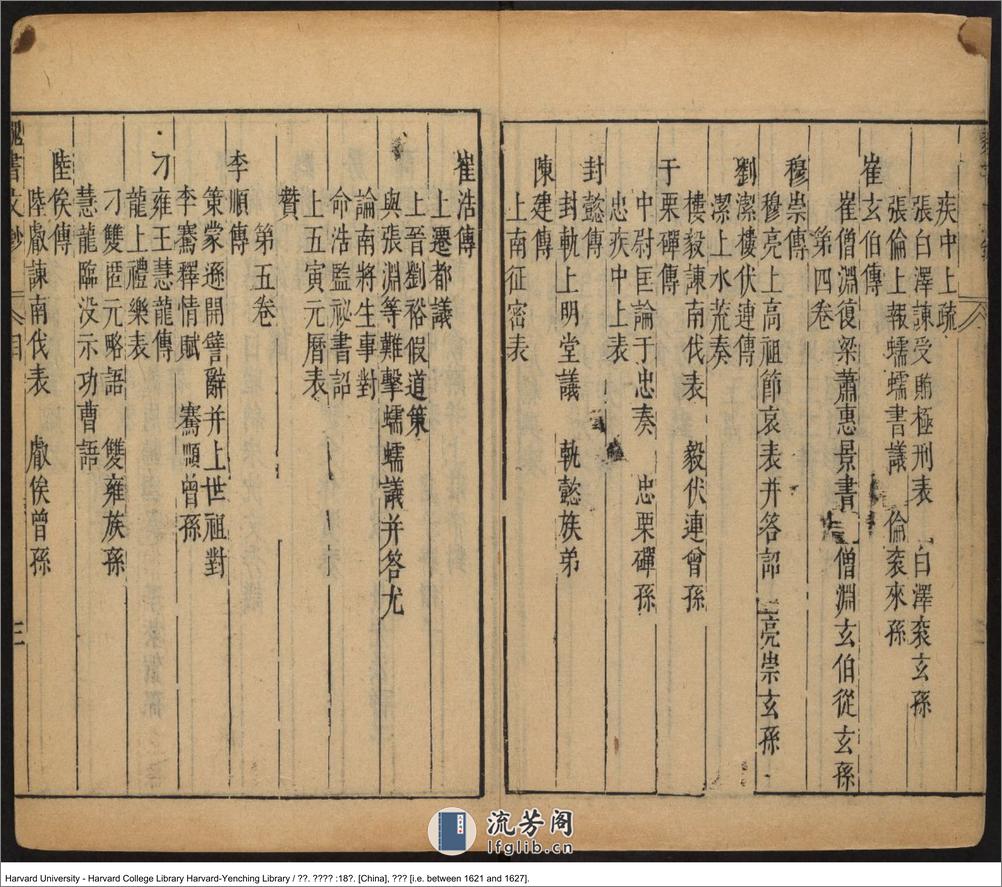 疾中上疏
張白澤諫受賄極刑表 白澤衮玄孫
張倫上報蠕蠕書議 倫衮來孫
崔玄伯傳
崔僧淵復梁蕭惠景書 僧淵玄伯從玄孫
第四卷
穆崇傳
穆亮上高祖節哀表并答詔 亮崇玄孫
劉潔樓伏連傳
潔上水荒奏
樓毅諫南伐表 毅伏連曾孫
于栗磾傳
中尉匡論于忠奏 忠栗磾孫
忠疾中上表
封懿傳
封軌上明堂議 軌懿族弟
陳建傳
上南征密表
崔浩傳
上遷都議
上晉劉裕假道策
與張淵等難擊蠕蠕議并答尤
論南將生事對
命浩監祕書詔
上五寅元曆表
贊
第五卷
李順傳
策蒙遜開譬辭并上世祖對
李騫釋情賦 騫順曾孫
刁雍王慧龍傳
龍上禮樂表
刁雙匿元略語 雙雍族孫
慧龍臨没示功曹語
陸俟傳
陸叡諫南伐表 叡俟曾孫
魏書文鈔 目 三
流芳阁
lfglib.cn
Harvard University - Harvard College Library Harvard-Yenching Library / ??. ???? :18?. [China], ??? [i.e. between 1621 and 1627].